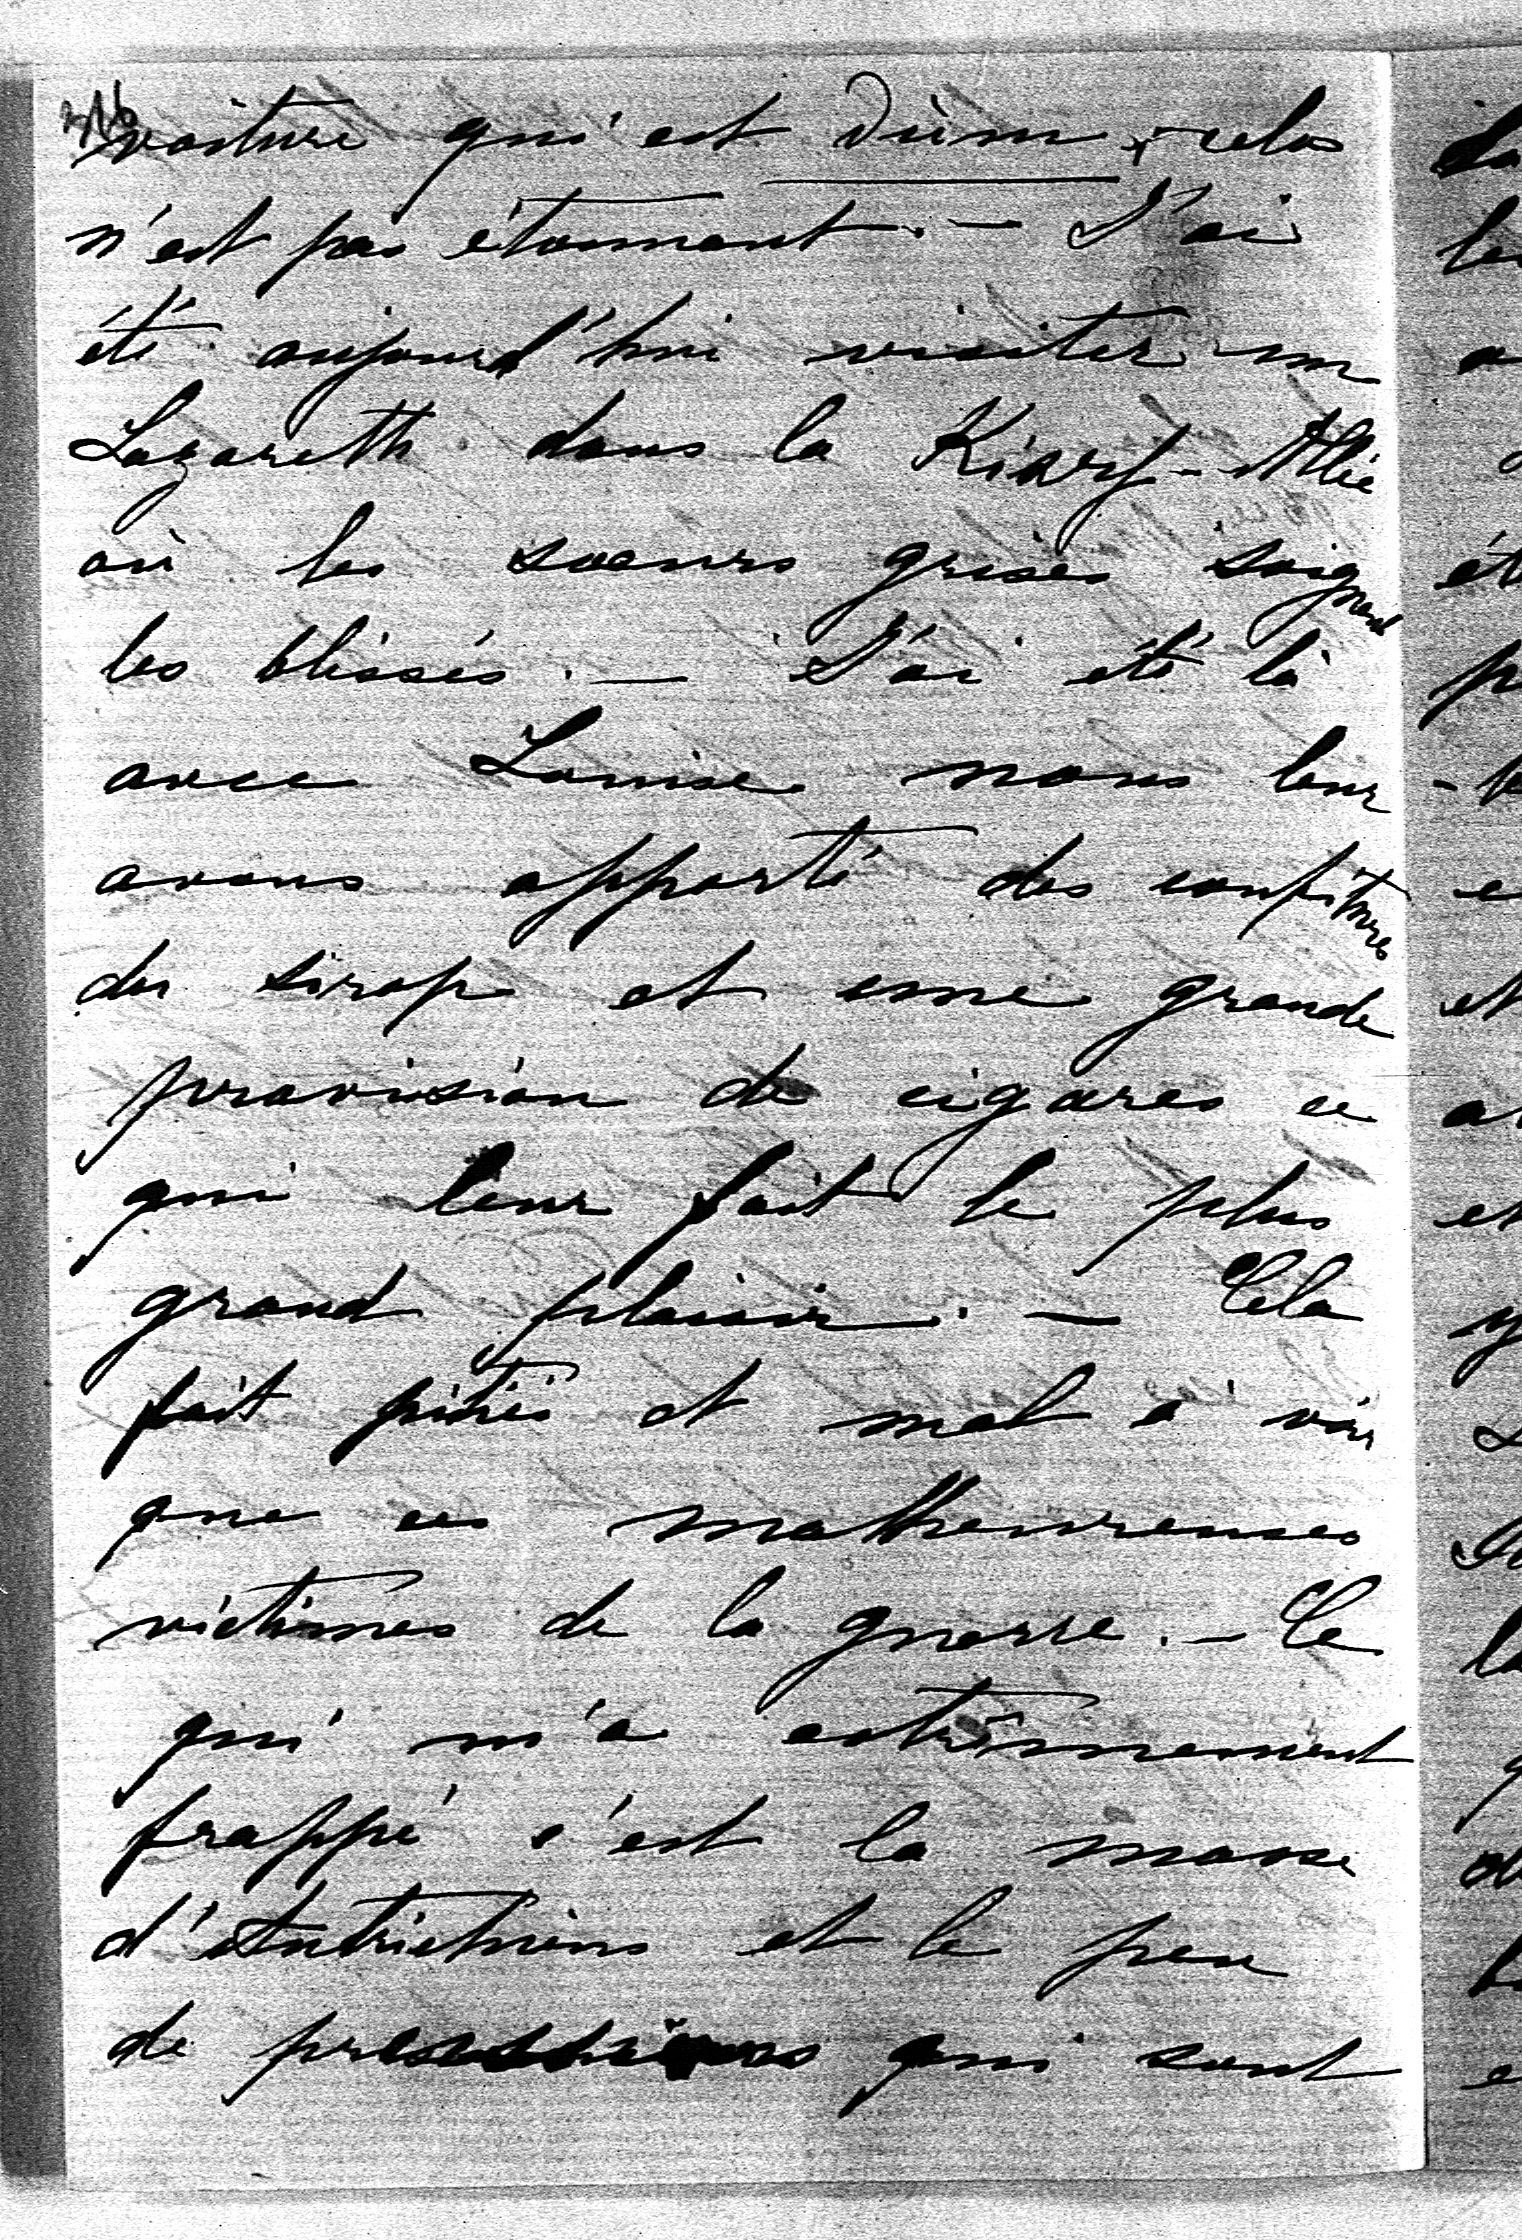 voiture qui est dünn, cela
n'est pas étonnant. — J'ai
été aujourd'hui visiter un
Lazareth dans la Kinsy-Allée
où les sœurs grises soignent
les blessés. — J'ai été là
avec Louise nous leur
avons apporté des confitures
du sirop et une grande
provision de cigares ce
qui leur fait le plus
grand plaisir. — Cela
fait pitié et mal à voir
que ces malheureuses
victimes de la guerre. — Ce
qui m'a extrêmement
frappé c'est la masse
d'Autrichiens et le peu
de prussiens qui sont